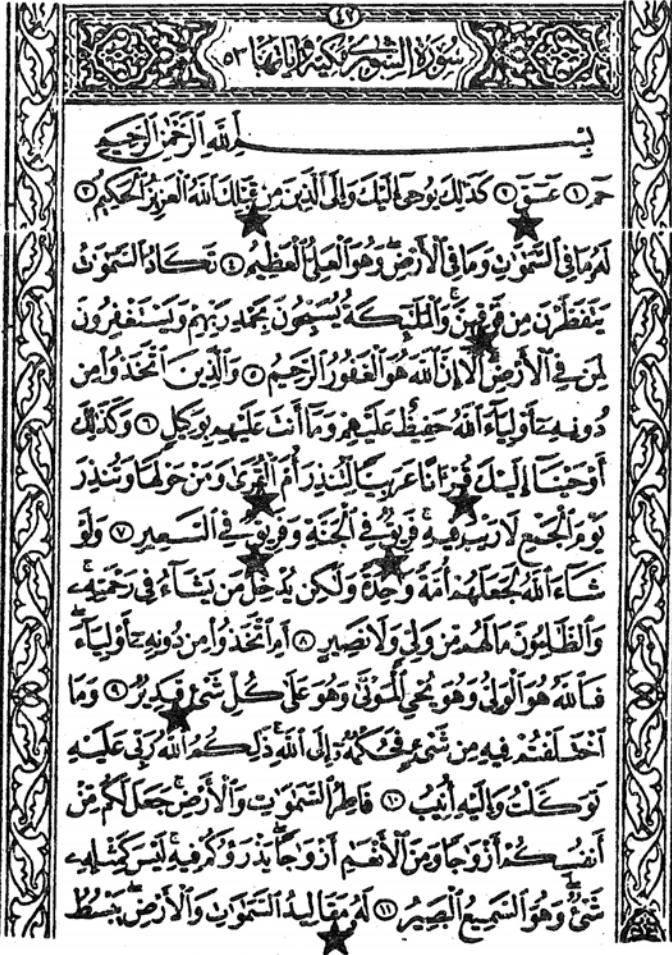 ٤٢
سُورَةُ الشُّورَىٰ مَكِّيَّةٌ وَآيَاتُهَا ٥٣
بِسْمِ ٱللَّهِ ٱلرَّحْمَٰنِ ٱلرَّحِيمِ
حمٓ ١ عٓسٓقٓ ٢ كَذَٰلِكَ يُوحِىٓ إِلَيْكَ وَإِلَى ٱلَّذِينَ مِن قَبْلِكَ ٱللَّهُ ٱلْعَزِيزُ ٱلْحَكِيمُ ٣
لَهُۥ مَا فِى ٱلسَّمَٰوَٰتِ وَمَا فِى ٱلْأَرْضِۖ وَهُوَ ٱلْعَلِىُّ ٱلْعَظِيمُ ٤ تَكَادُ ٱلسَّمَٰوَٰتُ
يَتَفَطَّرْنَ مِن فَوْقِهِنَّۚ وَٱلْمَلَٰٓئِكَةُ يُسَبِّحُونَ بِحَمْدِ رَبِّهِمْ وَيَسْتَغْفِرُونَ
لِمَن فِى ٱلْأَرْضِۗ أَلَآ إِنَّ ٱللَّهَ هُوَ ٱلْغَفُورُ ٱلرَّحِيمُ ٥ وَٱلَّذِينَ ٱتَّخَذُوا۟ مِن
دُونِهِۦٓ أَوْلِيَآءَ ٱللَّهُ حَفِيظٌ عَلَيْهِمْ وَمَآ أَنتَ عَلَيْهِم بِوَكِيلٍ ٦ وَكَذَٰلِكَ
أَوْحَيْنَآ إِلَيْكَ قُرْءَانًا عَرَبِيًّا لِّتُنذِرَ أُمَّ ٱلْقُرَىٰ وَمَنْ حَوْلَهَا وَتُنذِرَ
يَوْمَ ٱلْجَمْعِ لَا رَيْبَ فِيهِۚ فَرِيقٌ فِى ٱلْجَنَّةِ وَفَرِيقٌ فِى ٱلسَّعِيرِ ٧ وَلَوْ
شَآءَ ٱللَّهُ لَجَعَلَهُمْ أُمَّةً وَٰحِدَةً وَلَٰكِن يُدْخِلُ مَن يَشَآءُ فِى رَحْمَتِهِۦۚ
وَٱلظَّٰلِمُونَ مَا لَهُم مِّن وَلِىٍّ وَلَا نَصِيرٍ ٨ أَمِ ٱتَّخَذُوا۟ مِن دُونِهِۦٓ أَوْلِيَآءَۖ
فَٱللَّهُ هُوَ ٱلْوَلِىُّ وَهُوَ يُحْىِ ٱلْمَوْتَىٰ وَهُوَ عَلَىٰ كُلِّ شَىْءٍ قَدِيرٌ ٩ وَمَا
ٱخْتَلَفْتُمْ فِيهِ مِن شَىْءٍ فَحُكْمُهُۥٓ إِلَى ٱللَّهِۚ ذَٰلِكُمُ ٱللَّهُ رَبِّى عَلَيْهِ
تَوَكَّلْتُ وَإِلَيْهِ أُنِيبُ ١٠ فَاطِرُ ٱلسَّمَٰوَٰتِ وَٱلْأَرْضِۚ جَعَلَ لَكُم مِّنْ
أَنفُسِكُمْ أَزْوَٰجًا وَمِنَ ٱلْأَنْعَٰمِ أَزْوَٰجًاۖ يَذْرَؤُكُمْ فِيهِۚ لَيْسَ كَمِثْلِهِۦ
شَىْءٌۖ وَهُوَ ٱلسَّمِيعُ ٱلْبَصِيرُ ١١ لَهُۥ مَقَالِيدُ ٱلسَّمَٰوَٰتِ وَٱلْأَرْضِۖ يَبْسُطُ